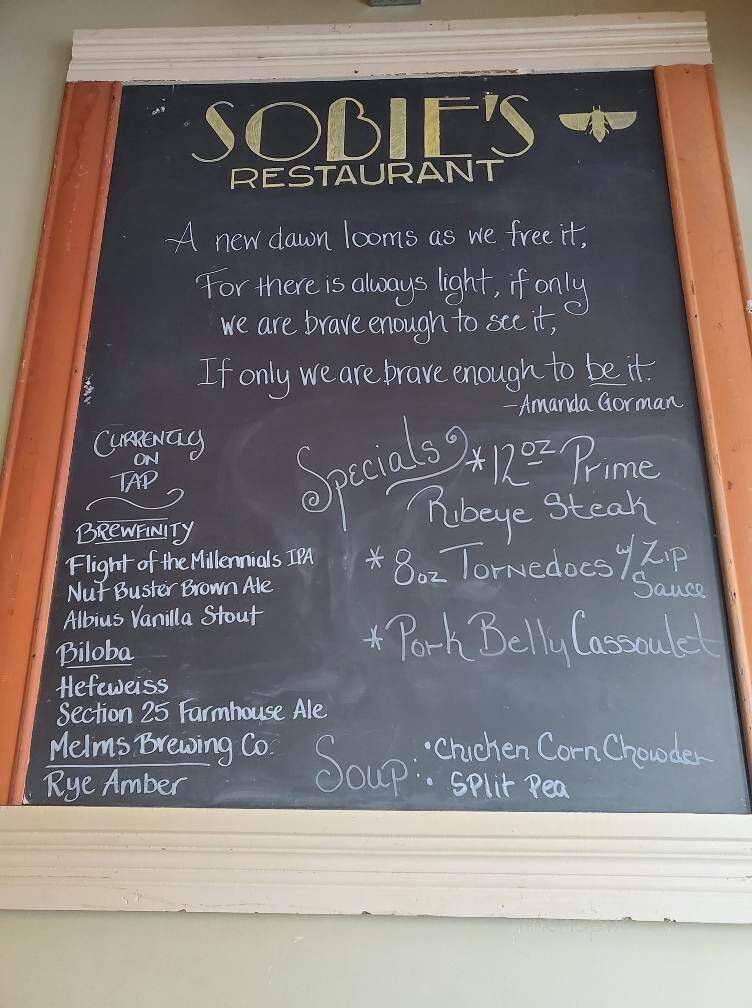 SOBIE'S
RESTAURANT
A new dawn looms as we free it,
For there is always light, if only
we are brave enough to see it,
If only we are brave enough to be it.
-Amanda Gorman
CURRENTLY
ON
TAP
BREWFINITY
Flight of the Millennials IPA
Nut Buster Brown Ale
Albius Vanilla Stout
Biloba
Hefeweiss
Section 25 Farmhouse Ale
Melms Brewing Co.
Rye Amber
Specials
* 12 oz Prime
Ribeye Steak
* 8oz Tornedoes w/ Zip
Sauce
* Pork Belly Cassoulet
Soup: • Chicken Corn Chowder
• Split Pea